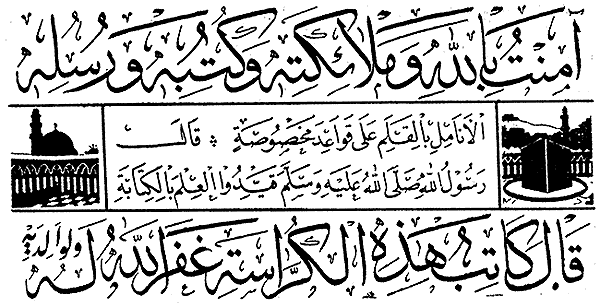 آمَنْتُ بِاللهِ وَمَلَائِكَتِهِ وَكُتُبِهِ وَرُسُلِهِ
الأَنَامِلِ بِالْقَلَمِ عَلَى قَوَاعِدَ مَخْصُوصَةٍ ؞ قَالَــ
رَسُولُ اللهِ صَلَّى اللهُ عَلَيْهِ وَسَلَّمَ قَيِّدُوا الْعِلْمَ بِالْكِتَابَةِ
قَالَ كَاتِبُ هَذِهِ الْكُرَّاسَةِ غَفَرَ اللهُ لَهُ وَلِوَالِدَيْهِ